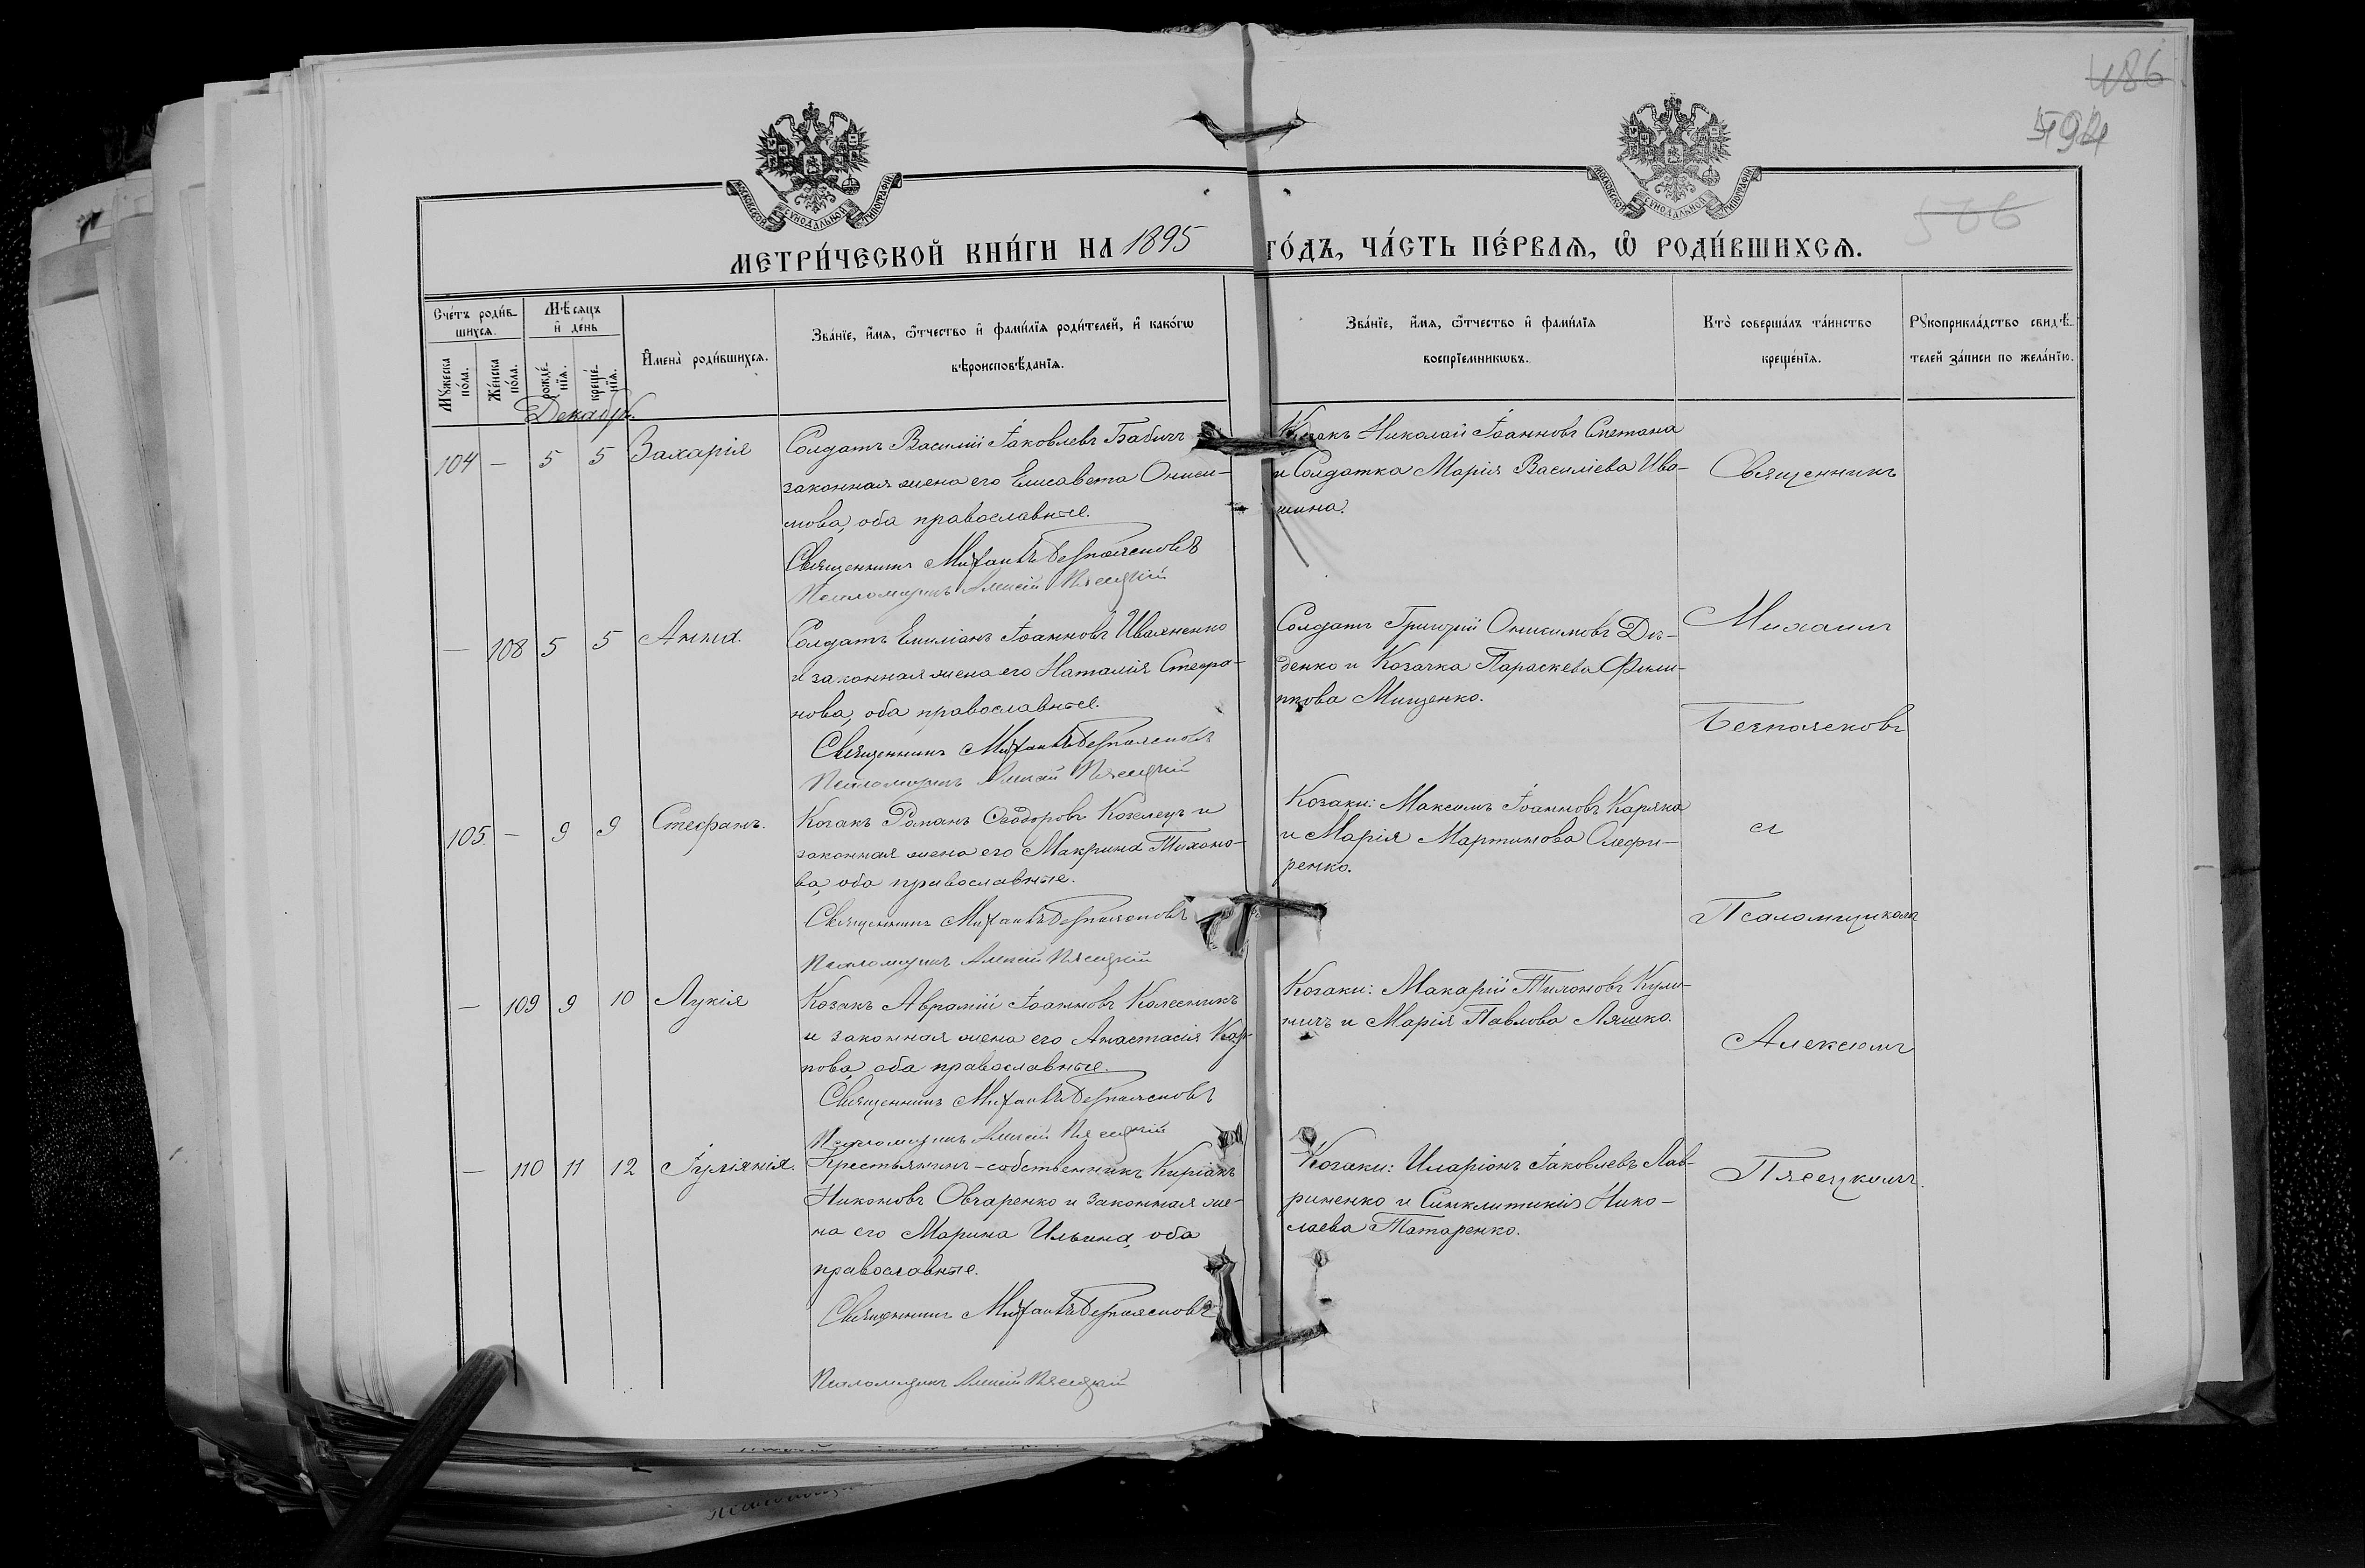 486
594
506
МОСКОВСКОЙ СѴНОДАЛЬНОЙ ТИПОГРАФІИ
МОСКОВСКОЙ СѴНОДАЛЬНОЙ ТИПОГРАФІИ
МЕТРИ́ЧЕСКОЙ КНИ́ГИ НА 1895 ГО́ДЪ, ЧА́СТЬ ПЕ́РВАѦ, Ѡ҆ РОДИ́ВШИХСѦ.
Счétъ роди́в-
шихсѧ.
Мꙋ́жеска по́ла.
Же́нска по́ла.
Мѣ́сѧцъ и҆ де́нь
рожде́-
нїѧ.
креще́-
нїѧ.
И҆мена̀ роди́вшихсѧ.
Зва́нїе, и҆́мѧ, ѻ҆́тчество и҆ фами́лїѧ роди́телей, и҆ како́гѡ
вѣроисповѣ́данїѧ.
Зва́нїе, и҆́мѧ, ѻ҆́тчество и҆ фами́лїѧ
воспрїе́мникѡвъ.
Кто̀ соверша́лъ та́инство
креще́нїѧ.
Рꙋкоприкла́дство свидѣ́-
телей за́писи по жела́нїю.
Декабрь.
104 — 5 5 Захарія
Солдатъ Василій Іаковлевъ Бабичъ
законная жена его Елисавета Ониси-
мова, оба православные.
Священникъ Михаилъ Безпоясковъ
Псаломщикъ Алексій Пясецкій
Козакъ Николай Іоанновъ Сметана
и Солдатка Марія Василіева Ива-
шина.
— 108 5 5 Анна.
Солдатъ Емиліанъ Іоанновъ Иваненко
и законная жена его Наталія Стефа-
нова, оба православные.
Священникъ Михаилъ Безпоясковъ
Псаломщикъ Алексій Пясецкій
Солдатъ Григорій Онисимовъ Ди-
денко и Козачка Параскева Фили-
ппова Мищенко.
105. — 9 9 Стефанъ.
Козакъ Романъ Ѳеодоровъ Козелецъ и
законная жена его Макрина Тихоно-
ва, оба православные.
Священникъ Михаилъ Безпоясковъ
Псаломщикъ Алексій Пясецкій
Козаки: Максимъ Іоанновъ Каряка
и Марія Мартинова Олефи-
ренко.
— 109 9 10 Лукія
Козакъ Аврамій Іоанновъ Колесникъ
и законная жена его Анастасія Кар-
пова, оба православные.
Священникъ Михаилъ Безпоясковъ
Псаломщикъ Алексій Пясецкій
Козаки: Макарій Тихоновъ Кули-
ничъ и Марія Павлова Ляшко.
— 110 11 12 Іуліанія.
Крестьянинъ-собственникъ Киріакъ
Никоновъ Овчаренко и законная же-
на его Марина Ильина, оба
православные.
Священникъ Михаилъ Безпоясковъ
Псаломщикъ Алексій Пясецкій
Козаки: Иларіонъ Іаковлевъ Лав-
риненко и Синклитикія Нико-
лаева Татаренко.
Священникъ
Михаилъ
Безпоясковъ
съ
Псаломщикомъ
Алексіемъ
Пясецкимъ.